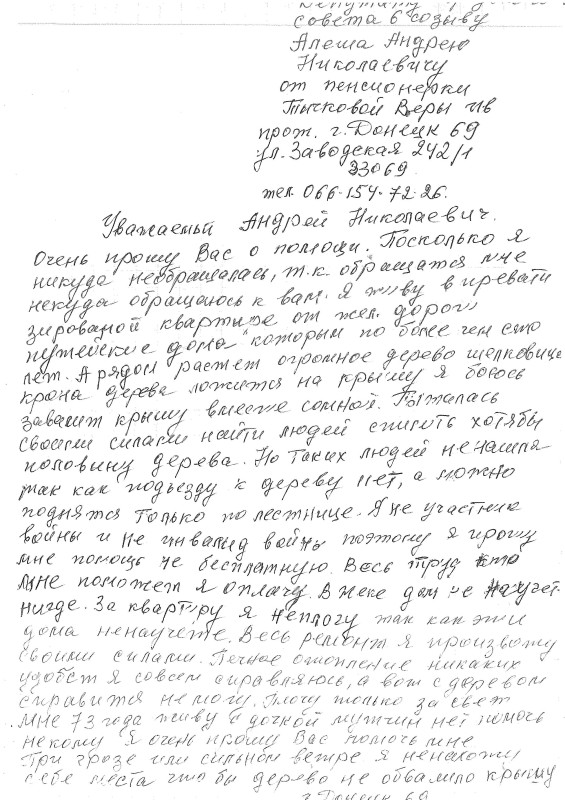 совета 6 созыву
Алеша Андрею
Николаевичу
от пенсионерки
Тычковой Веры Ив
прож. г. Донецк 69
ул. Заводская 242/1
83069
тел. 066-154-72-26.
Уважаемый Андрей Николаевич.
Очень прошу Вас о помощи. Поскольку я
никуда необращалась, т.к. обращатся мне
некуда обращаюсь к вам. Я живу в превати
зированой квартире от жел. дороги
путейские дома которым по более чем сто
лет. А рядом растет огромное дерево шелковице
крона дерева ложится на крышу я боюсь
завалит крышу вместе сомной. Пыталась
своими силами найти людей спилить хотябы
половину дерева. Но таких людей ненашла
так как подъезду к дереву нет, а можно
поднятся только по лестнице. Я не участник
войны и не инвалид войны поэтому я прошу
мне помощь не бесплатную. Весь труд кто
мне поможет я оплачу. В жеке дом не научет
нигде. За квартиру я неплогу так как эти
дома ненаучете. Весь ремонт я произвожу
своими силами. Печное отопление никаких
удобст я совсем справляюсь, а вот с деревом
справится не могу. Плочу только за свет
мне 73 года живу с дочкой мужчин нет помочь
некому я очень прошу Вас помочь мне
При грозе или сильном ветре я ненахожу
себе места что бы дерево не обвалило крышу
г. Донецк 69